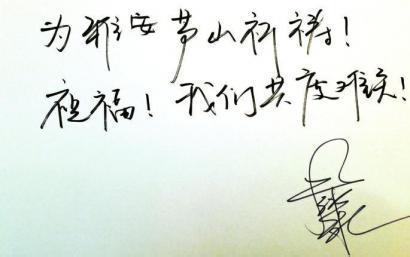 为雅安芦山祈祷!
祝福!我们共度难关!